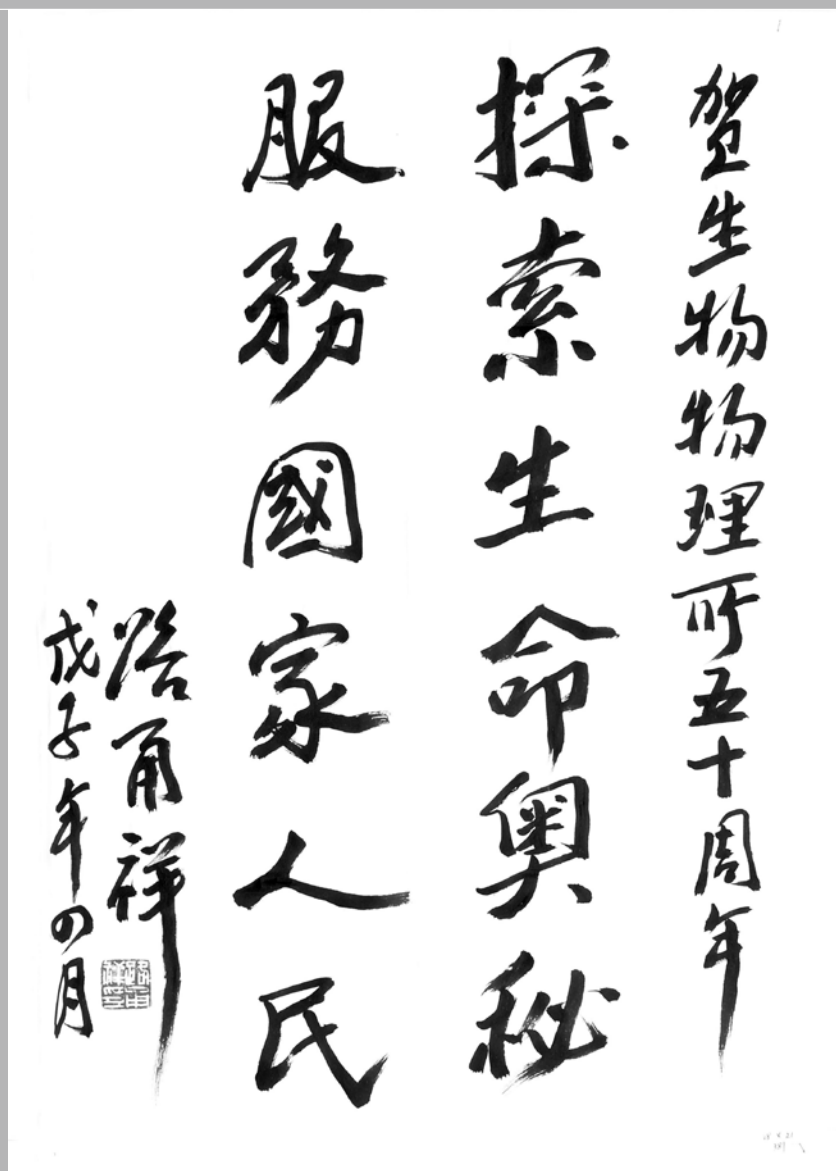 贺生物物理所五十周年
探索生命奥秘
服務國家人民
路甬祥
戊子年四月